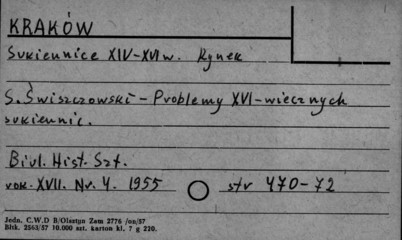 KRAKÓW
Sukiennice XIV-XVI w. Rynek
S. Świszczowski - Problemy XVI-wiecznych
sukiennic.
Biul. Hist. Szt.
rok. XVII. Nr. 4. 1955 str 470-72
Jedn. C.W.D B/Olsztyn Zam 2776 /oo/57
Bltk. 2563/57 10.000 szt. karton kl. 7 g 220.